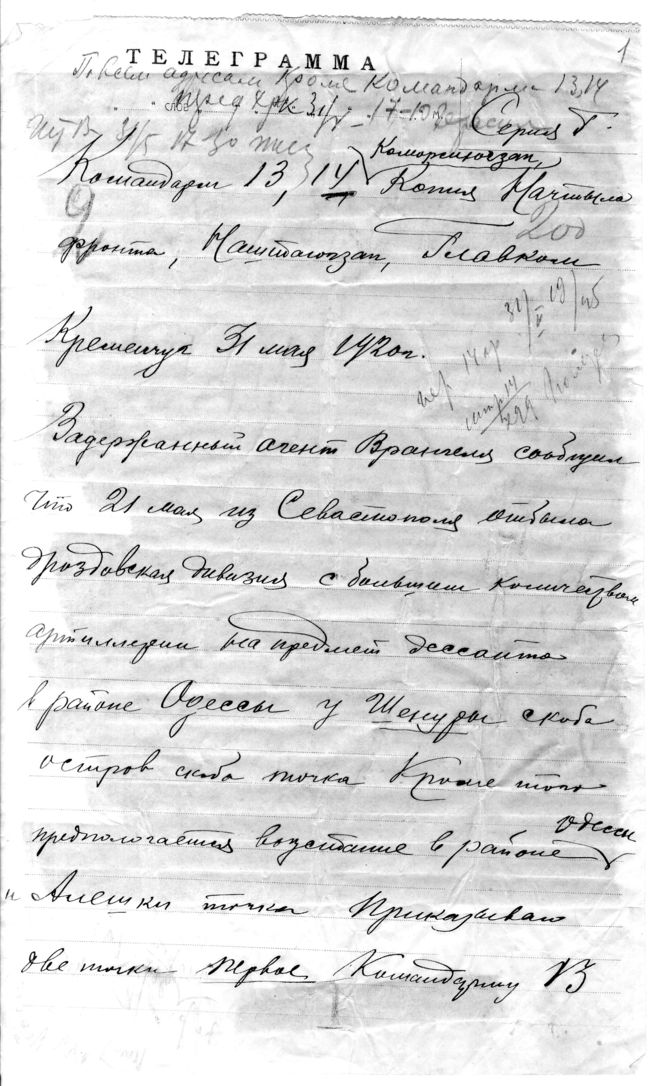 1
ТЕЛЕГРАММА
По всем адресам кроме Командарм 13,14
слов
Серия Г.
31/5 17 30
Коморсиюгзап,
Командарм 13, 14, Копия Начтыла
200
фронта, Наштаюгзап, Главком
Кременчуг 31 мая 1920 г.
Задержанный агент Врангеля сообщил
что 21 мая из Севастополя отбыла
дроздовская дивизия с большим количеством
артиллерии на предмет дессанта
в районе Одессы у Шенуры скоба
остров скоба точка Кроме того
Одессы
предпологается возстание в районе
и Алешки точка Приказываю
две точки первое Командарму 13